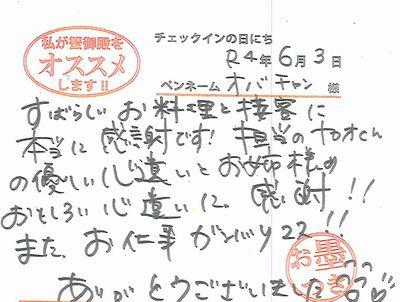 私が蟹御殿を
オススメ
します!!
チェックインの日にち
R4年6月3日
ペンネーム オバチャン 様
すばらしいお料理と接客に
本当に感謝です! 担当の くん
の優しい心遣いとお姉様の
おもしろい心遣いに。感謝!!
また。お仕事ガンバリ !!
ありがとうございました
お墨
つき